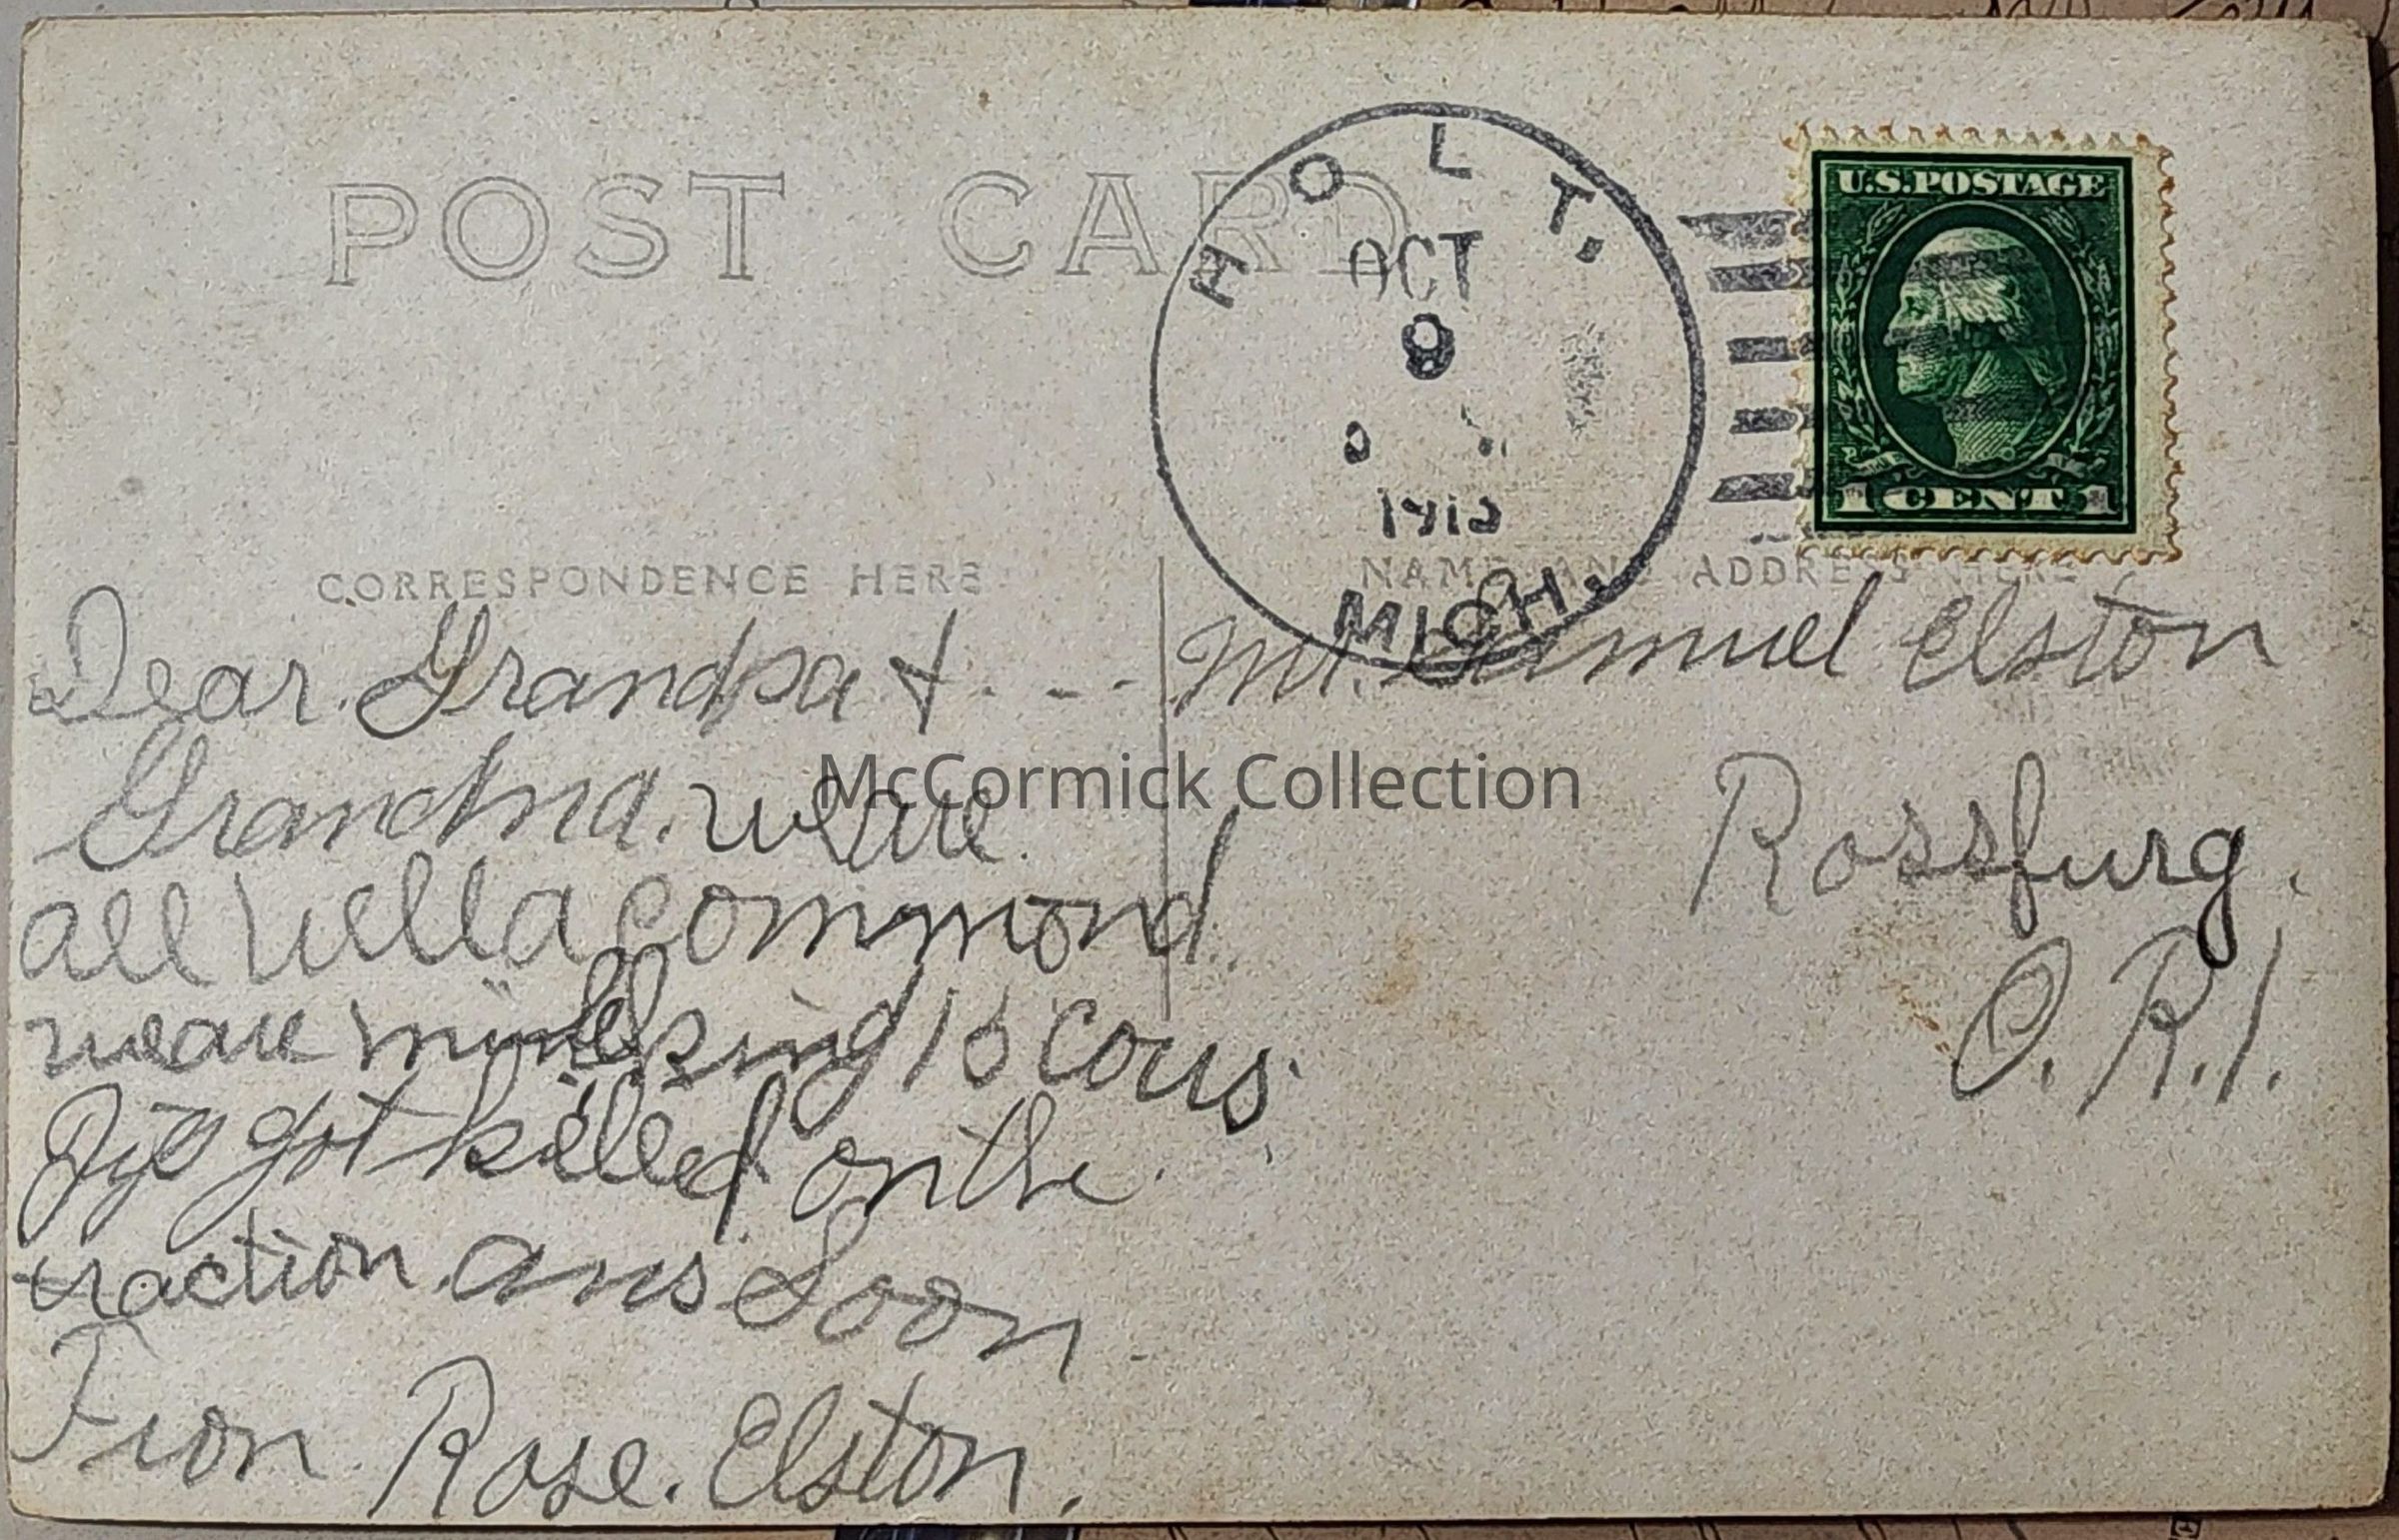 POST CARD
HOLT.
OCT
9
MICH.
U.S. POSTAGE
1 CENT 1
CORRESPONDENCE HERE
NAME AND ADDRESS HERE
Dear. Grandpa & - - -
Grandma. we are
all well a commond
we are milking 13 cows.
got killed on the
traction. ans Soon
From Rose. Elston.
Mr. Samuel Elston
Rossfurg.
O. R.1.
McCormick Collection